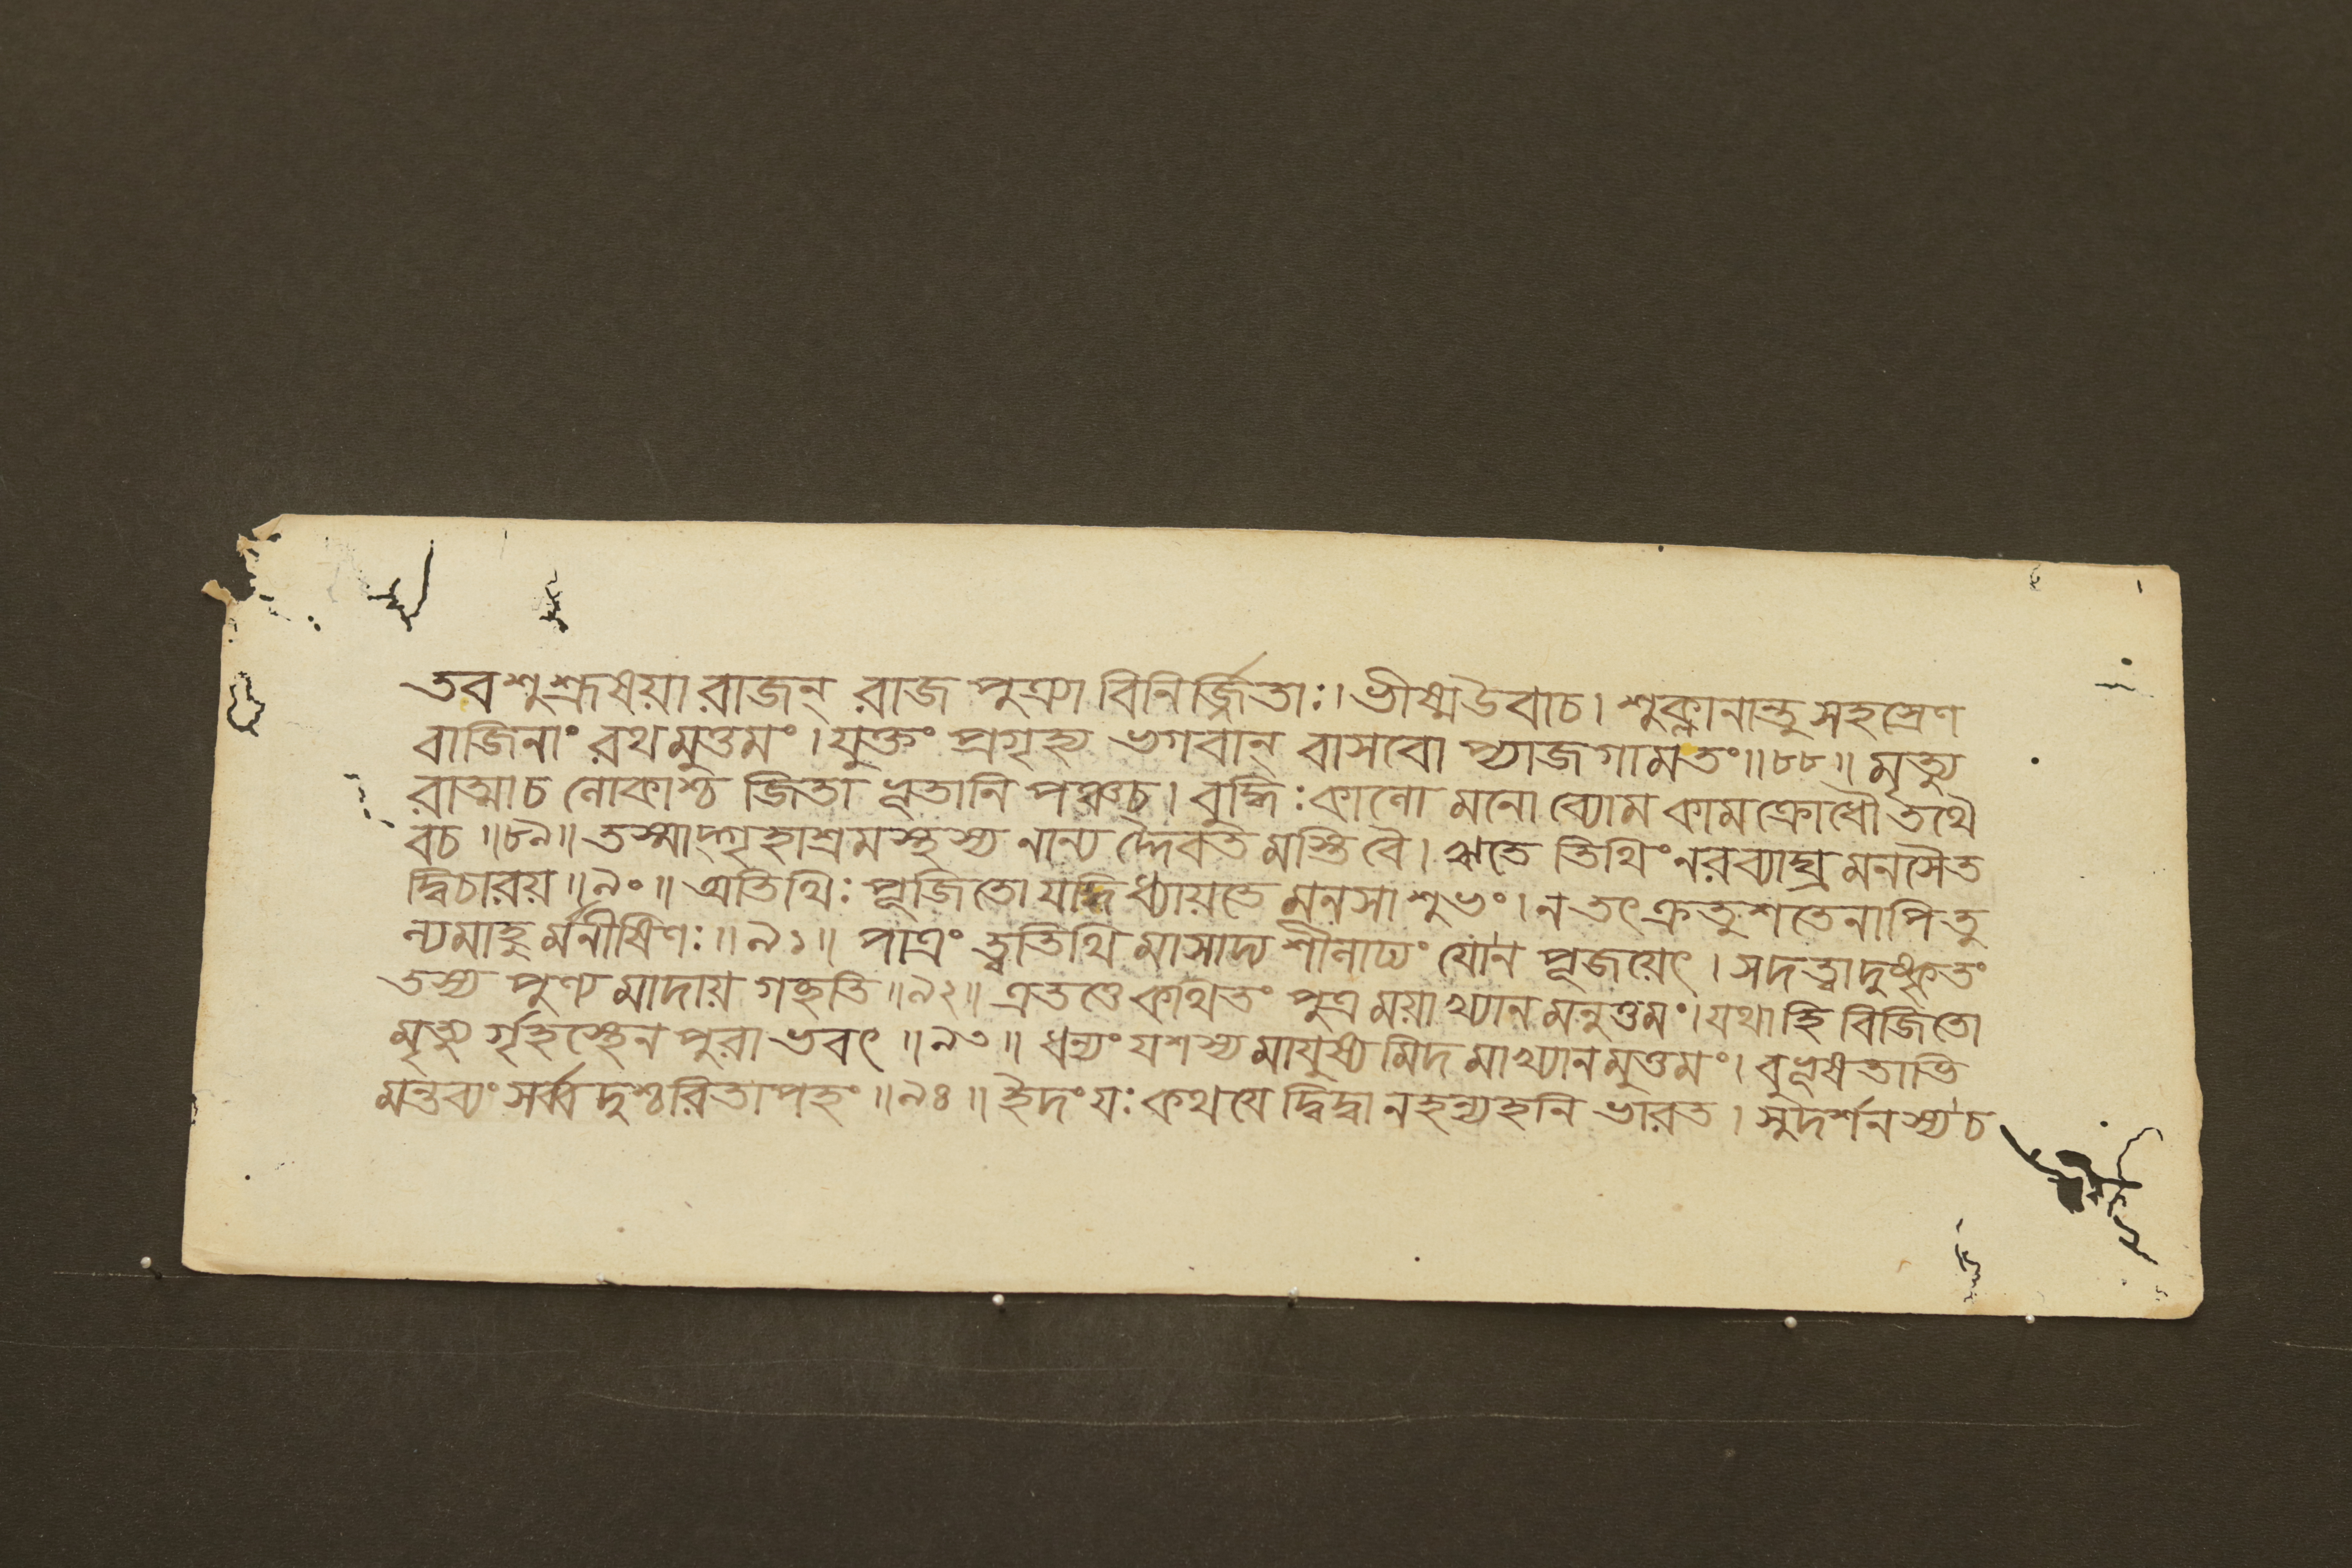 তব শুশ্রূষয়া রাজন্ রাজ পুত্র্যা বিনির্জ্জিতাঃ। ভীষ্মউবাচ। শুক্লানান্তু সহস্রেণ
বাজিনাং রথমুত্তমং। যুক্তং প্রগৃহ্য ভগবান্ বাসবো প্যাজগামতং॥৮৮॥ মৃত্যু
রাত্মাচ লোকাশ্চ জিতা ভূতানি পঞ্চচ। বুদ্ধিঃ কালো মনো ব্যোম কামক্রোধৌ তথৈ
বচ॥৮৯॥ তস্মাদ্গৃহাশ্রমস্থস্য নান্য দ্দৈবত মস্তি বৈ। ঋতে তিথিং নরব্যাঘ্র মনসৈত
দ্বিচারয়॥৯০॥ অতিথিঃ পূজিতো যদ্ধি ধ্যায়তে মনসা শুভং। ন তৎ ক্রতু শতেনাপি তু
ল্যমাহু র্মনীষিণঃ॥৯১॥ পাত্রং ত্বতিথি মাসাদ্য শীলাঢ্যং যোন পূজয়েৎ। সদত্ত্বা দুষ্কৃতং
তস্য পুণ্য মাদায় গচ্ছতি॥৯২॥ এতত্তে কথিতং পুত্র ময়াখ্যান মনুত্তমং। যথাহি বিজিতো
মৃত্যু র্গৃহস্থেন পুরা ভবৎ॥৯৩॥ ধন্যং যশস্য মায়ুষ্য মিদ মাখ্যানমুত্তমং। বুভূষতাভি
মন্তব্যং সর্ব্ব দুশ্চরিতাপহং॥৯৪॥ ইদং যঃ কথয়ে দ্বিদ্বানহন্যহনি ভারত। সুদর্শনস্য চ